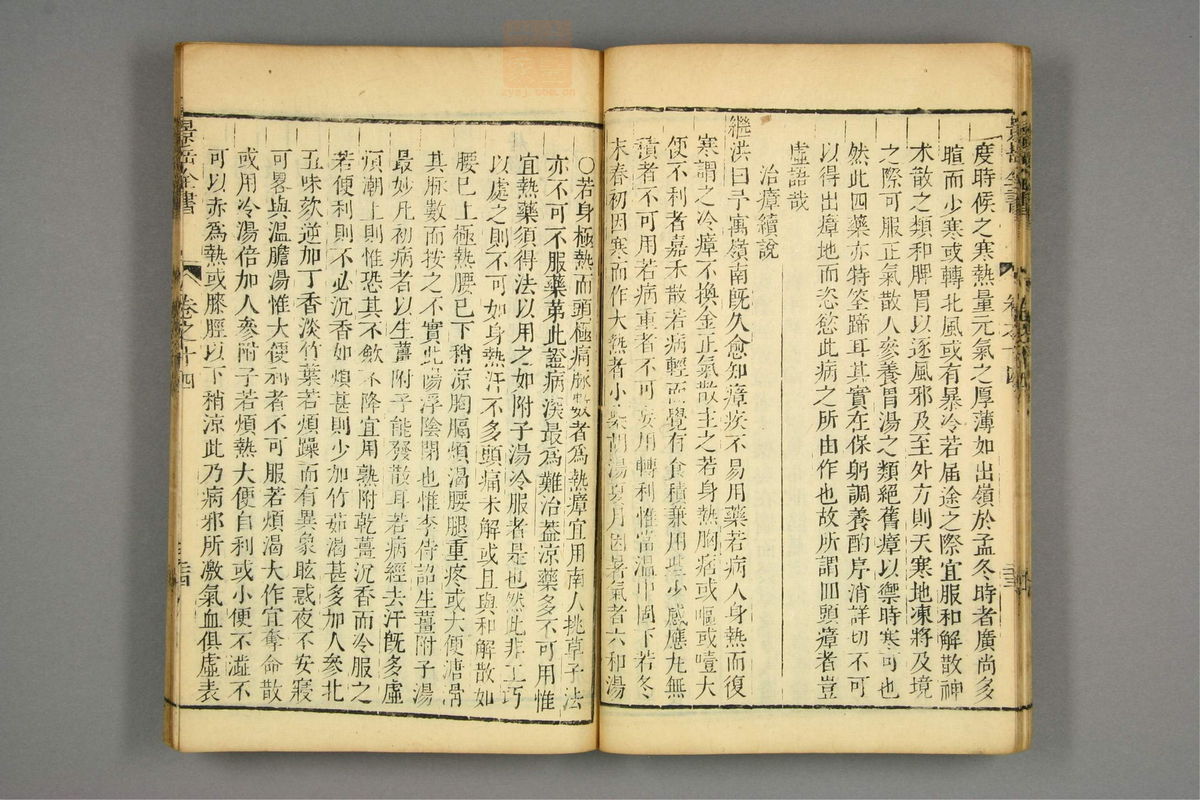 度時候之寒熱量元氣之厚薄如出嶺於孟冬時者廣尚多
暄而少寒或轉北風或有暴冷若届途之際宜服和解散神
术散之類和脾胃以逐風邪及至外方則天寒地凍將及境
之際可服正氣散人參養胃湯之類絕舊瘴以禦時寒可也
然此四藥亦特筌蹄耳其實在保躬調養酌序消詳切不可
以得出瘴地而恣慾此病之所由作也故所謂回頭瘴者豈
虛語哉
治瘴續說
繼洪曰予寓嶺南既久愈知瘴疾不易用藥若病人身熱而復
寒謂之冷瘴不換金正氣散主之若身熱胸痞或嘔或噎大
便不利者嘉禾散若病輕而覺有食積兼用些少感應尤無
積者不可用若病重者不可妄用轉利惟當溫中固下若冬
末春初因寒而作大熱者小柴胡湯夏月因暑氣者六和湯
○若身極熱而頭極痛脉數者爲熱瘴宜用南人挑草子法
亦不可不服藥第此證病深最爲難治蓋凉藥多不可用惟
宜熱藥須得法以用之如附子湯冷服者是也然此非工巧
以處之則不可如身熱汗不多頭痛未解或且與和解散如
腰巳上極熱腰巳下稍凉胸膈煩渴腰腿重疼或大便溏滑
其脉數而按之不實此陽浮陰閉也惟李待詔生薑附子湯
最妙凡初病者以生薑附子能發散耳若病經去汗既多虛
煩潮上則惟恐其不飲不降宜用熟附乾薑沉香而冷服之
若便利則不必沉香如煩甚則少加竹茹渴甚多加人參北
五味欬逆加丁香淡竹葉若煩躁而有異象眩惑夜不安寢
可畧與溫膽湯惟大便利者不可服若煩渴大作宜奪命散
或用冷湯倍加人參附子若煩熱大便自利或小便不澁不
可以赤爲熱或膝脛以下稍凉此乃病邪所激氣血俱虛表
景岳全書
卷之十四